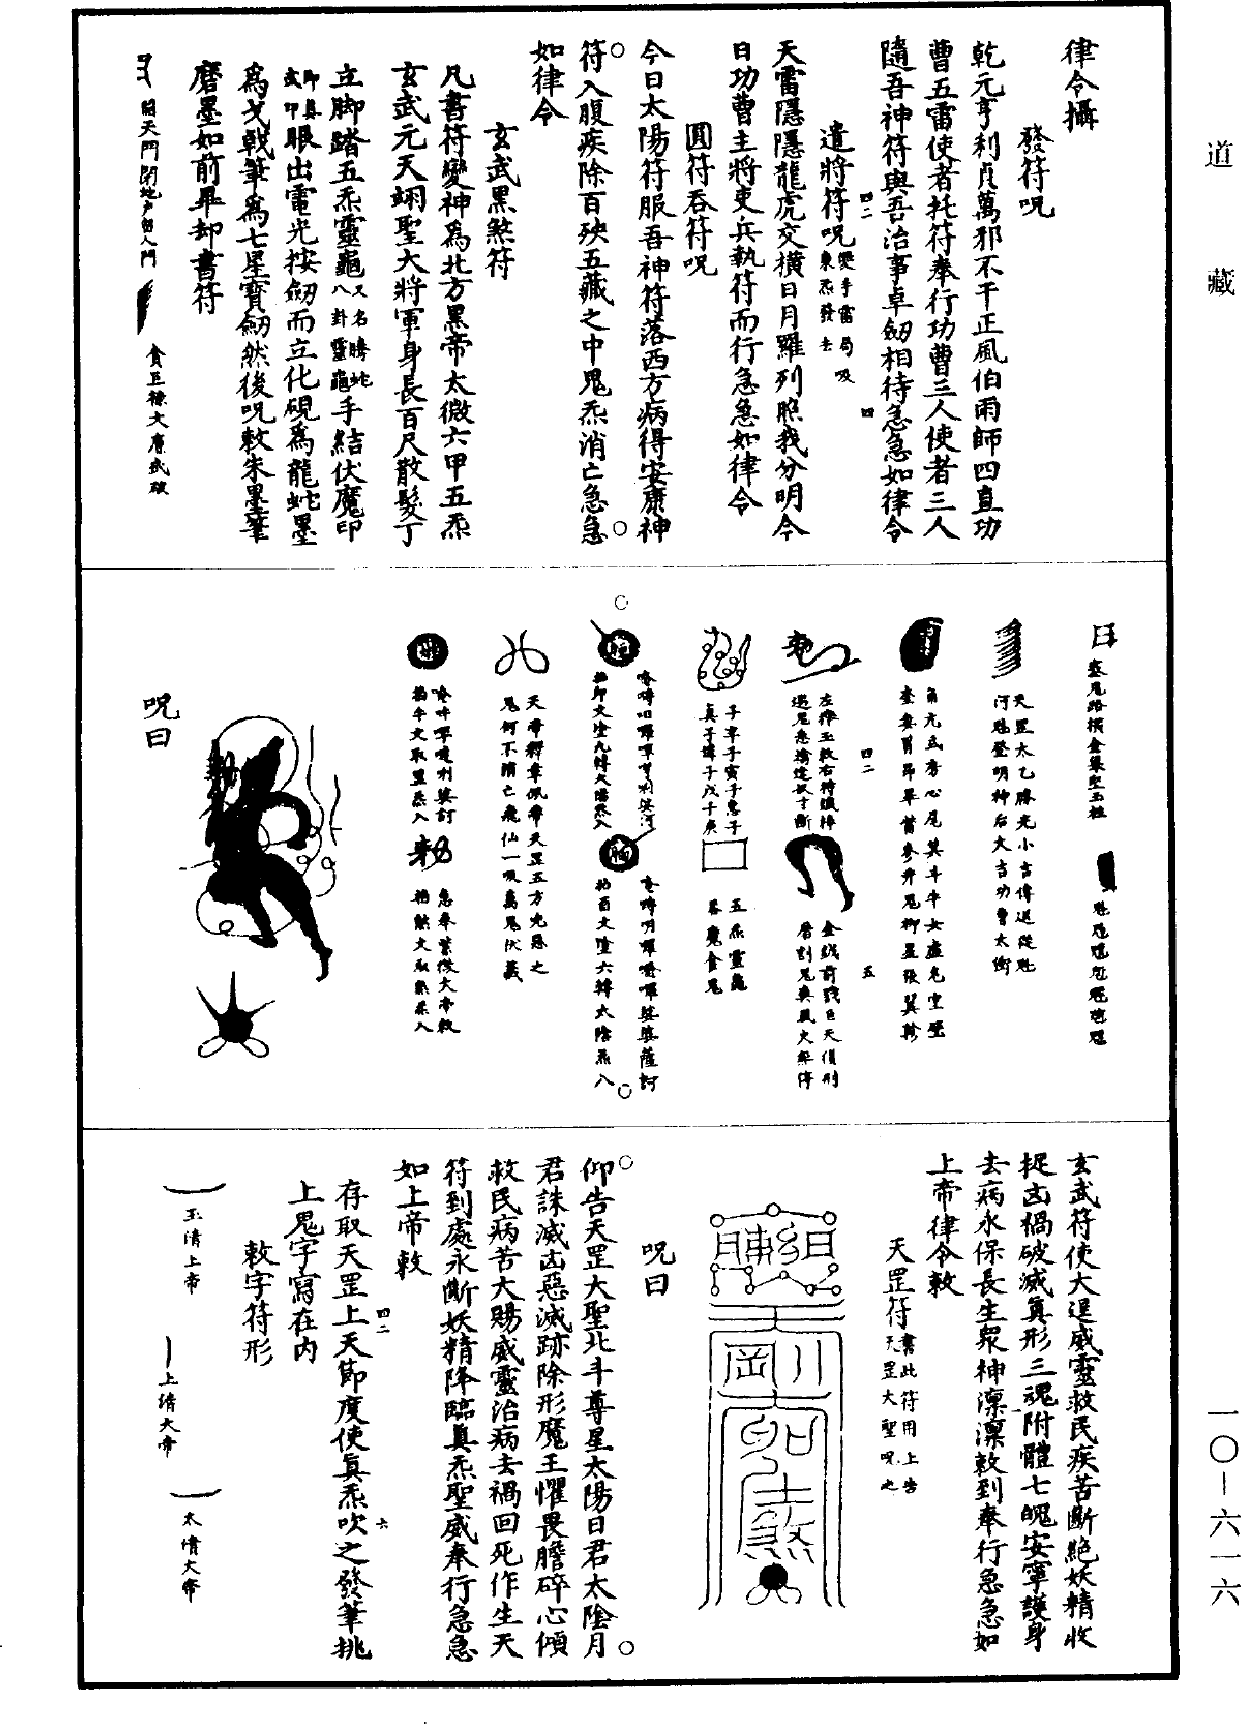 道藏
一〇—六一六
律令攝
發符呪
乾元亨利貞萬邪不干正風伯雨師四直功
曹五雷使者托符奉行功曹三人使者三人
隨吾神符與吾治事卓劒相待急急如律令
遣將符呪變手雷局吸東炁發去
天雷隱隱龍虎交橫日月羅列照我分明今
日功曹主將吏兵執符而行急急如律令
圓符吞符呪
今日太陽符服吾神符落西方病得安康神
符入腹疾除百殃五藏之中鬼炁消亡急急
如律令
玄武黑煞符
凡書符變神爲北方黑帝太微六甲五炁
玄武元天翊聖大將軍身長百尺散髮丁
立脚踏五炁靈龜又名螣蛇八卦靈龜手結伏魔印
即真武印眼出電光按劒而立化硯爲龍蛇墨
爲戈戟筆爲七星寶劒然後呪敕朱墨筆
磨墨如前畢却書符
開天門閉地戶留人門
貪巨祿文廉武破
塞鬼路橫金梁堅玉柱
魁𩲃𩳐𩲉魓𩳌魒
天罡太乙勝光小吉傳送從魁
河魁登明神后大吉功曹太衝
角亢氐房心尾箕斗牛女虛危室壁
奎婁胃昴畢觜參井鬼柳星張翼軫
四二
五
子辛子寅子
五炁靈龜
吞魔食鬼
天帝釋章佩帶天罡五方凶惡之
鬼何不消亡飛仙一吸萬鬼伏藏
急奉紫微大帝敕
呪曰
玄武符使大逞威靈救民疾苦斷絕妖精收
捉凶禍破滅真形三魂附體七魄安寧護身
去病永保長生衆神凛凛敕到奉行急急如
上帝律令敕
天罡符書此符用上告天罡大聖呪之
呪曰
仰告天罡大聖北斗尊星太陽日君太陰月
君誅滅凶惡滅跡除形魔王懼畏膽碎心傾
救民病苦大賜威靈治病去禍回死作生天
符到處永斷妖精降臨真炁聖威奉行急急
如上帝敕
四二
六
存取天罡上天節度使真炁吹之發筆挑
上鬼字寫在內
敕字符形
玉清上帝
上清大帝
太清大帝